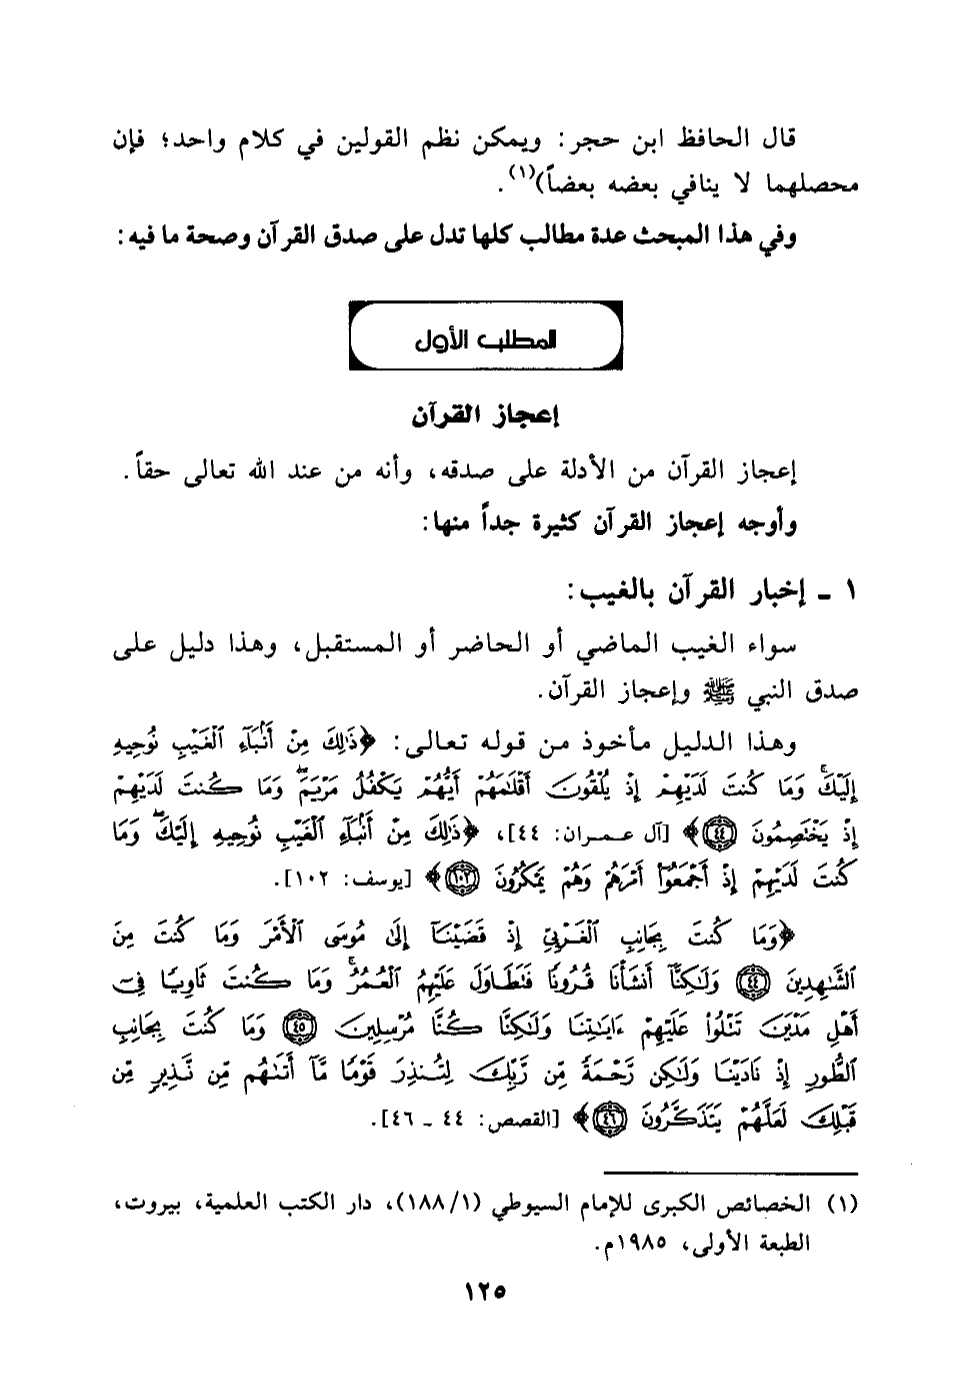 قال الحافظ ابن حجر: ويمكن نظم القولين في كلام واحد؛ فإن
محصلهما لا ينافي بعضه بعضاً)(١).
وفي هذا المبحث عدة مطالب كلها تدل على صدق القرآن وصحة ما فيه:
المطلب الأول
إعجاز القرآن
إعجاز القرآن من الأدلة على صدقه، وأنه من عند الله تعالى حقاً.
وأوجه إعجاز القرآن كثيرة جداً منها:
١ - إخبار القرآن بالغيب:
سواء الغيب الماضي أو الحاضر أو المستقبل، وهذا دليل على
صدق النبي ﷺ وإعجاز القرآن.
وهذا الدليل مأخوذ من قوله تعالى: ﴿ذَٰلِكَ مِنْ أَنۢبَآءِ ٱلْغَيْبِ نُوحِيهِ
إِلَيْكَ ۚ وَمَا كُنتَ لَدَيْهِمْ إِذْ يُلْقُونَ أَقْلَٰمَهُمْ أَيُّهُمْ يَكْفُلُ مَرْيَمَ ۖ وَمَا كُنتَ لَدَيْهِمْ
إِذْ يَخْتَصِمُونَ ٤٤﴾ [آل عمران: ٤٤]، ﴿ذَٰلِكَ مِنْ أَنۢبَآءِ ٱلْغَيْبِ نُوحِيهِ إِلَيْكَ ۖ وَمَا
كُنتَ لَدَيْهِمْ إِذْ أَجْمَعُوٓا۟ أَمْرَهُمْ وَهُمْ يَمْكُرُونَ ١٠٢﴾ [يوسف: ١٠٢].
﴿وَمَا كُنتَ بِجَانِبِ ٱلْغَرْبِىِّ إِذْ قَضَيْنَآ إِلَىٰ مُوسَى ٱلْأَمْرَ وَمَا كُنتَ مِنَ
ٱلشَّٰهِدِينَ ٤٤ وَلَٰكِنَّآ أَنشَأْنَا قُرُونًا فَتَطَاوَلَ عَلَيْهِمُ ٱلْعُمُرُ ۚ وَمَا كُنتَ ثَاوِيًا فِىٓ
أَهْلِ مَدْيَنَ تَتْلُوا۟ عَلَيْهِمْ ءَايَٰتِنَا وَلَٰكِنَّا كُنَّا مُرْسِلِينَ ٤٥ وَمَا كُنتَ بِجَانِبِ
ٱلطُّورِ إِذْ نَادَيْنَا وَلَٰكِن رَّحْمَةً مِّن رَّبِّكَ لِتُنذِرَ قَوْمًا مَّآ أَتَىٰهُم مِّن نَّذِيرٍ مِّن
قَبْلِكَ لَعَلَّهُمْ يَتَذَكَّرُونَ ٤٦﴾ [القصص: ٤٤ - ٤٦].
(١) الخصائص الكبرى للإمام السيوطي (١/ ١٨٨)، دار الكتب العلمية، بيروت،
الطبعة الأولى، ١٩٨٥م.
١٢٥